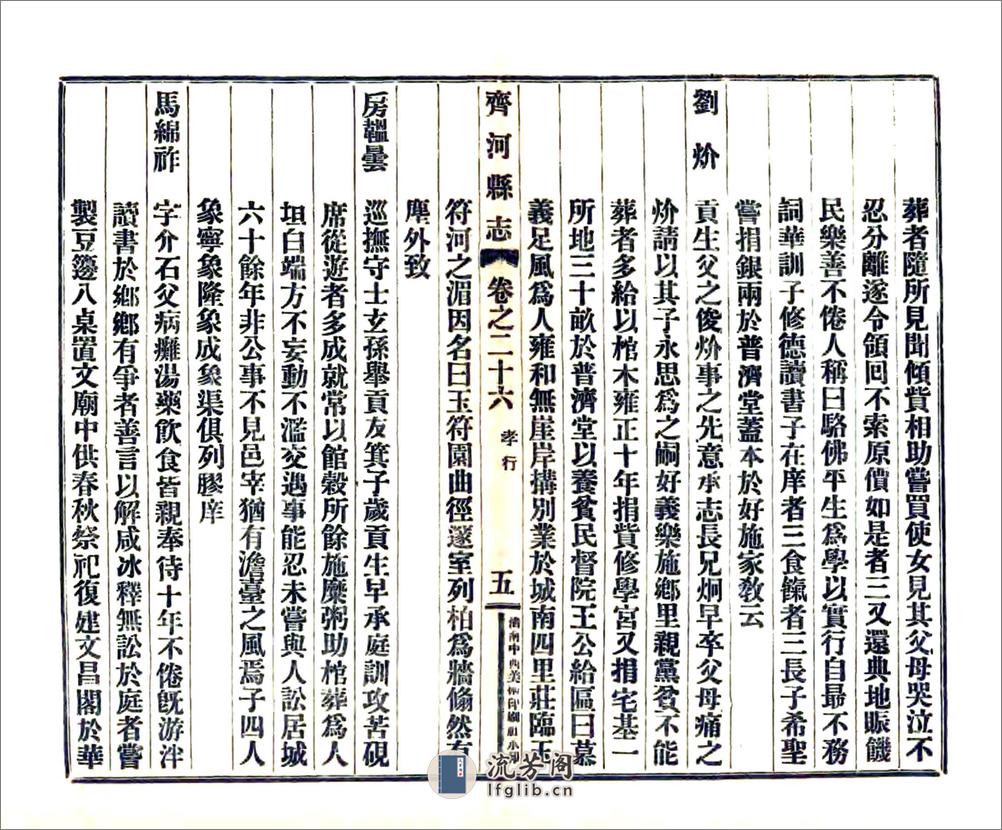 葬者隨所見聞傾貲相助嘗買使女見其父母哭泣不
忍分離遂令領回不索原價如是者三又還典地賑饑
民樂善不倦人稱曰駱佛平生為學以實行自勗不務
詞華訓子修德讀書子在庠者三食餼者三長子希聖
嘗捐銀兩於普濟堂蓋本於好施家教云
劉炌 貢生父之俊炌事之先意承志長兄炯早卒父母痛之
炌請以其子永思為之嗣好義樂施鄉里親黨貧不能
葬者多給以棺木雍正十年捐貲修學宮又捐宅基一
所地三十畝於普濟堂以養貧民督院王公給區曰慕
義足風為人雍和無崖岸搆別業於城南四里莊臨玉
齊河縣志 卷之二十六 孝行 五
符河之湄因名曰玉符園曲徑邃室列柏為牆翛然有
塵外致
房韞曇 巡撫守士玄孫舉貢友箕子歲貢生早承庭訓攻苦硯
席從遊者多成就常以館穀所餘施糜粥助棺葬為人
坦白端方不妄動不濫交遇事能忍未嘗與人訟居城
六十餘年非公事不見邑宰猶有澹臺之風焉子四人
象寧象隆象成象渠俱列膠庠
馬綿祚 字介石父病癱湯藥飲食皆親奉待十年不倦既游泮
讀書於鄉鄉有爭者善言以解咸冰釋無訟於庭者嘗
製豆籩八桌置文廟中供春秋祭祀復建文昌閣於華
流芳閣
lfglib.cn